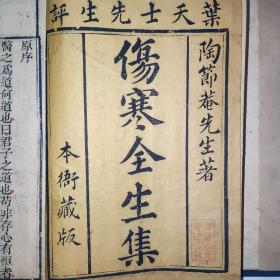 葉天士先生評
陶節菴先生著
傷寒全生集
本衙藏版
原序
醫之爲道何道也曰君子之道也苟非存心有恆者